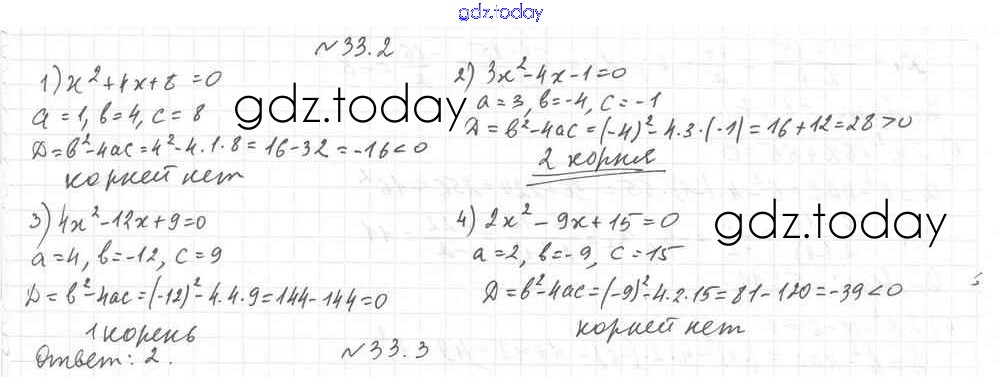 gdz.today
№33.2
1) x²+4x+8=0
a=1, b=4, c=8
D=b²-4ac=4²-4·1·8=16-32=-16<0
корней нет
gdz.today
2) 3x²-4x-1=0
a=3, b=-4, c=-1
D=b²-4ac=(-4)²-4·3·(-1)=16+12=28>0
2 корня
3) 4x²-12x+9=0
a=4, b=-12, c=9
D=b²-4ac=(-12)²-4·4·9=144-144=0
1 корень
4) 2x²-9x+15=0
a=2, b=-9, c=15
D=b²-4ac=(-9)²-4·2·15=81-120=-39<0
корней нет
gdz.today
Ответ: 2.
№33.3